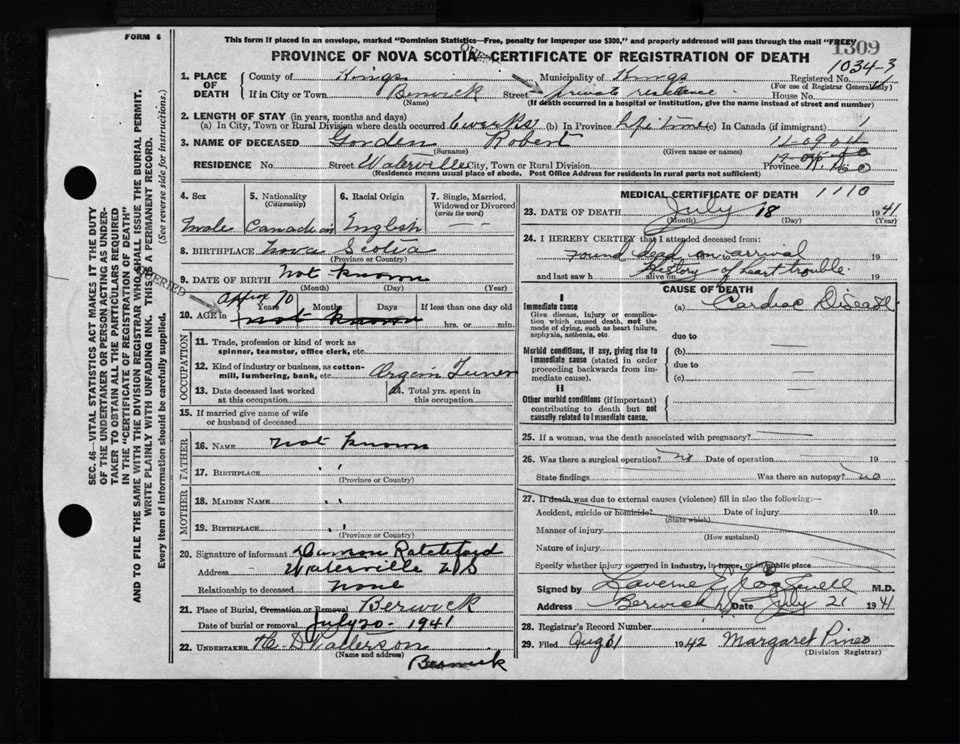 FORM 6
This form if placed in an envelope, marked "Dominion Statistics—Free, penalty for improper use $300," and properly addressed will pass through the mail "FREE"
1309
PROVINCE OF NOVA SCOTIA—CERTIFICATE OF REGISTRATION OF DEATH
1034-3
1. PLACE OF DEATH County of Kings Municipality of Kings Registered No.
(For use of Registrar General only)
If in City or Town Berwick Street private residence House No.
(Name) (If death occurred in a hospital or institution, give the name instead of street and number)
2. LENGTH OF STAY (in years, months and days)
(a) In City, Town or Rural Division where death occurred 6 weeks (b) In Province Life time (c) In Canada (if immigrant)
3. NAME OF DECEASED Gorden Robert
(Surname) (Given name or names)
RESIDENCE No. Street Waterville City, Town or Rural Division Province
(Residence means usual place of abode. Post Office Address for residents in rural parts not sufficient)
4. Sex 5. Nationality (Citizenship) 6. Racial Origin 7. Single, Married, Widowed or Divorced (write the word)
male Canadian English
8. BIRTHPLACE Nova Scotia
(Province or Country)
9. DATE OF BIRTH not known
(Month) (Day) (Year)
approx 70
10. AGE in Years Months Days If less than one day old
not known hrs. or min.
OCCUPATION
11. Trade, profession or kind of work as spinner, teamster, office clerk, etc.
12. Kind of industry or business, as cotton-mill, lumbering, bank, etc. Organ Tuner
13. Date deceased last worked at this occupation 14. Total yrs. spent in this occupation
15. If married give name of wife or husband of deceased
FATHER
16. NAME not known
17. BIRTHPLACE " "
(Province or Country)
MOTHER
18. MAIDEN NAME " "
19. BIRTHPLACE " "
(Province or Country)
20. Signature of informant Damon Ratchford
Address Waterville N S
Relationship to deceased none
21. Place of Burial, Cremation or Removal Berwick
Date of burial or removal July 20 - 1941
22. UNDERTAKER H. D Patterson
(Name and address)
Berwick
MEDICAL CERTIFICATE OF DEATH 1110
23. DATE OF DEATH July 18 1941
(Month) (Day) (Year)
24. I HEREBY CERTIFY that I attended deceased from:
found dead on arrival 19
and last saw h alive on History of heart trouble. 19
CAUSE OF DEATH
I
Immediate cause (a) Cardiac Disease
Give disease, injury or complication which caused death, not the mode of dying, such as heart failure, asphyxia, asthenia, etc.
due to
Morbid conditions, if any, giving rise to immediate cause (stated in order proceeding backwards from immediate cause).
(b)
due to
(c)
II
Other morbid conditions (if important) contributing to death but not causally related to immediate cause.
25. If a woman, was the death associated with pregnancy?
26. Was there a surgical operation? no Date of operation 19
State findings Was there an autopsy? no
27. If death was due to external causes (violence) fill in also the following:—
Accident, suicide or homicide? Date of injury 19
(State which)
Manner of injury
(How sustained)
Nature of injury
Specify whether injury occurred in industry, in home, or in public place
Signed by Laverne Cogswell M.D.
Address Berwick Date July 21 1941
28. Registrar's Record Number
29. Filed Aug 31 1942 Margaret Pineo
(Division Registrar)
SEC. 46—VITAL STATISTICS ACT MAKES IT THE DUTY
OF THE UNDERTAKER OR PERSON ACTING AS UNDER-
TAKER TO OBTAIN ALL THE PARTICULARS REQUIRED
IN THE "CERTIFICATE OF REGISTRATION OF DEATH"
AND TO FILE THE SAME WITH THE DIVISION REGISTRAR WHO SHALL ISSUE THE BURIAL PERMIT.
WRITE PLAINLY WITH UNFADING INK. THIS IS A PERMANENT RECORD.
Every item of information should be carefully supplied. (See reverse side for instructions.)
QUERIED